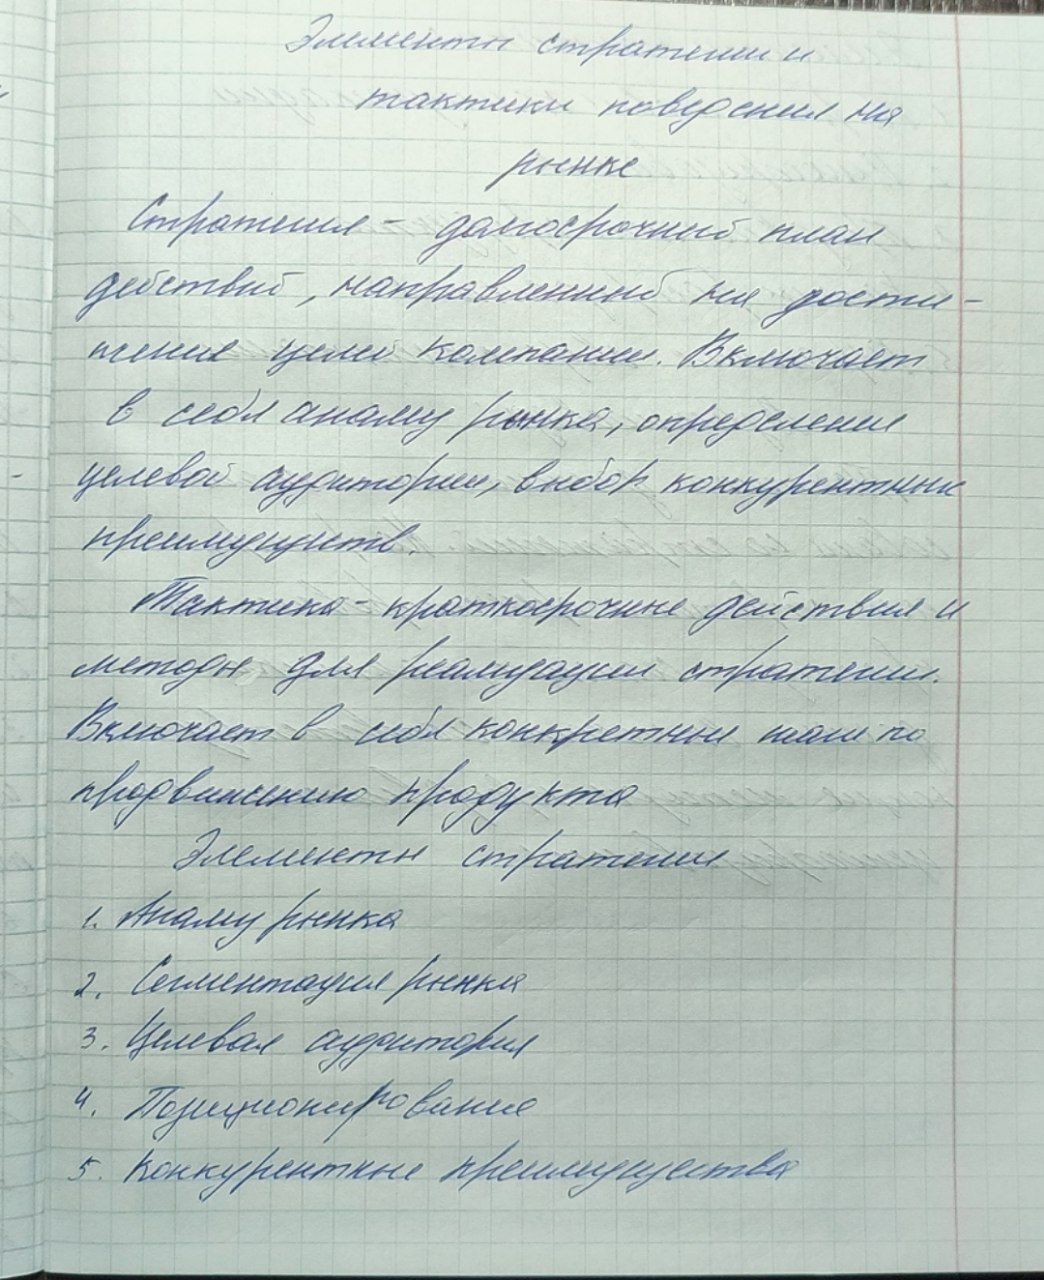 Элементы стратегии и
тактики поведения на
рынке
Стратегия - долгосрочный план
действий, направленный на дости-
жение целей компании. Включает
в себя анализ рынка, определение
целевой аудитории, выбор конкурентных
преимуществ.
Тактика - краткосрочные действия и
методы для реализации стратегии.
Включает в себя конкретные шаги по
продвижению продукта
Элементы стратегии
1. Анализ рынка
2. Сегментация рынка
3. Целевая аудитория
4. Позиционирование
5. Конкурентные преимущества